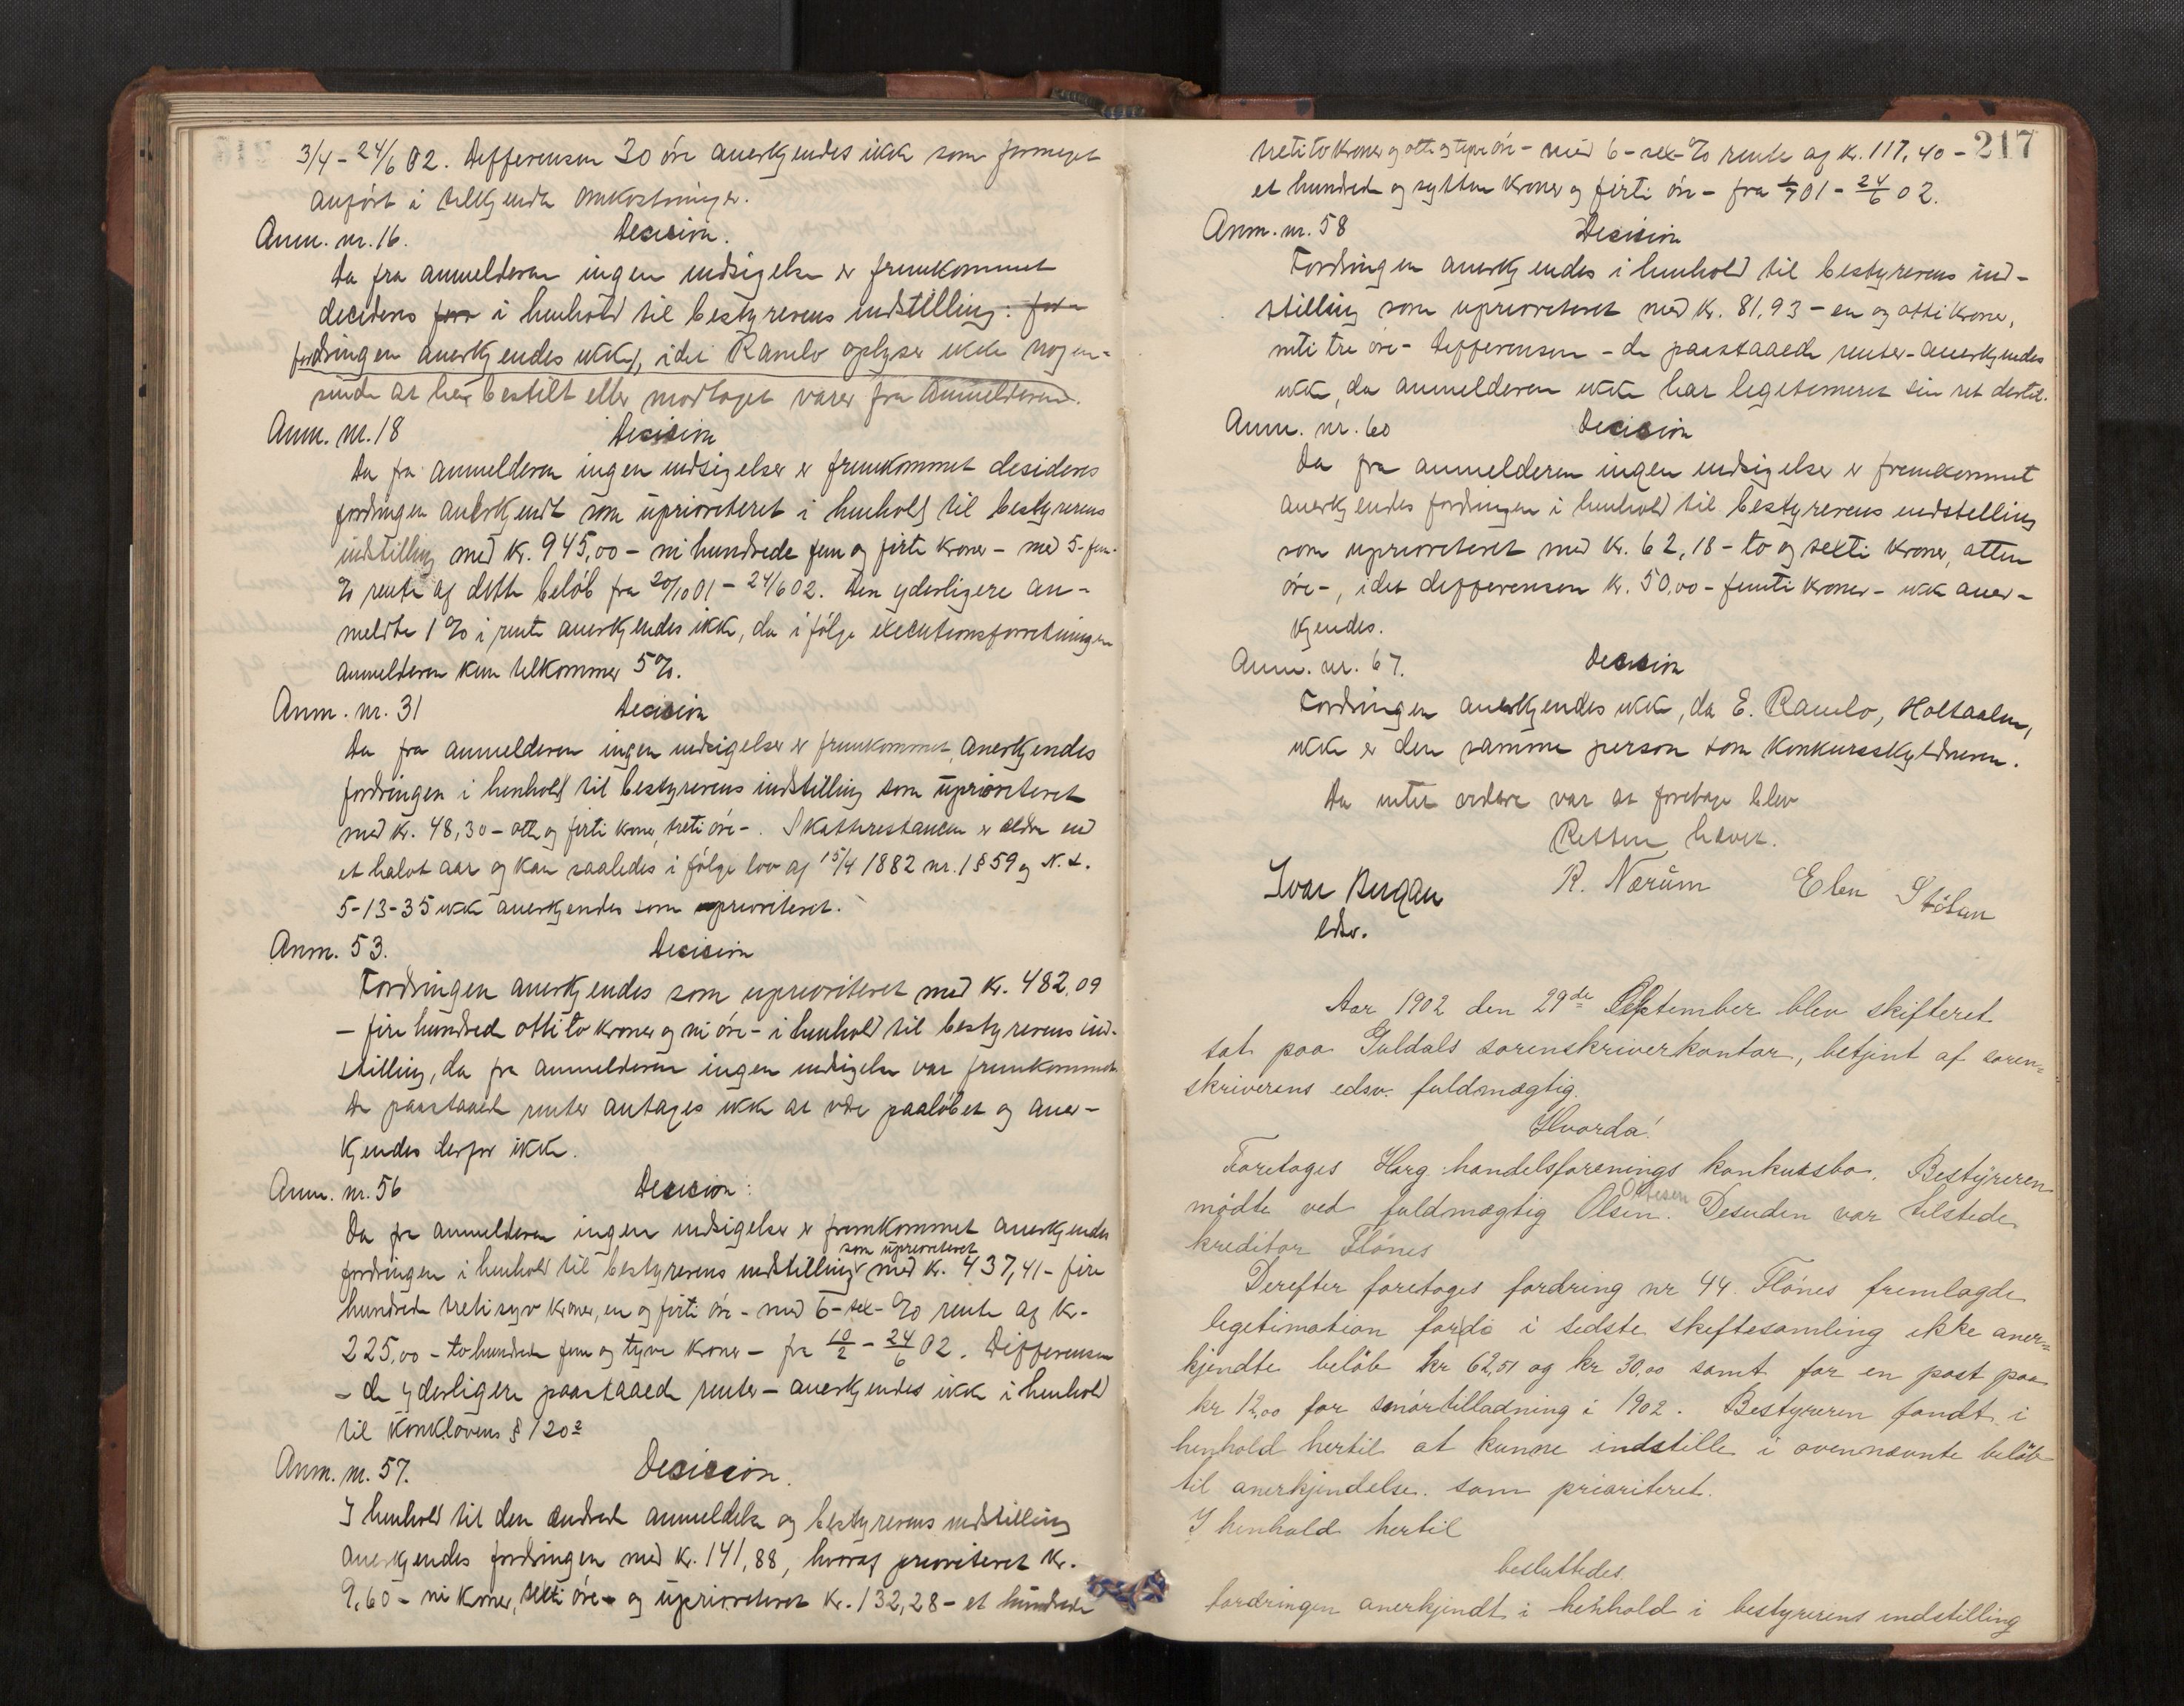 3/4 - 24/6 02. Defferensen 30 öre anerkjendes ikke som formeget
anfört i tilkjendte omkostninger.
Anm. nr. 16. Decision.
Da fra anmelderen ingen indsigelse er fremkommet
decideres i henhold til bestyrerens indstilling:
fordringen anerkjendes ikke, idet Ramlo oplyser ikke nogen-
sinde at have bestilt eller modtaget varer fra Anmelderen.
Anm. nr. 18 Decision
Da fra anmelderen ingen indsigelser er fremkommet desideres
fordringen anerkjendt som uprioriteret i henhold til bestyrerens
indstilling med kr. 945,00 - ni hundrede fem og firti kroner - med 5-fem-
% rente af dette beløb fra 20/10 01 - 24/6 02. Den yderligere an-
meldte 1 % i rente anerkjendes ikke, da i følge executionsforretningen
anmelderen kun tilkommer 5 %.
Anm. nr. 31 Decision
Da fra anmelderen ingen indsigelser er fremkommet, anerkjendes
fordringen i henhold til bestyrerens indstilling som uprioriteret
med kr. 48,30 - otte og firti kroner, treti öre -. Skatterestancen er ældre end
et halvt aar og kan saaledes i følge lov af 15/4 1882 nr. 1 § 59 og N. L.
5-13-35 ikke anerkjendes som prioriteret.
Anm. 53. Decision
Fordringen anerkjendes som uprioriteret med kr. 482,09
- fire hundred otti to kroner og ni öre - i henhold til bestyrerens ind-
stilling, da fra anmelderen ingen indsigelse var fremkommet
De paastaaede renter antages ikke at være paaløbet og aner-
kjendes derfor ikke.
Anm. nr. 56 Decision:
Da fra anmelderen ingen indsigelser er fremkommet anerkjendes
som uprioriteret
fordringen i henhold til bestyrerens indstilling med kr. 437,41 - fire
hundrede treti syv kroner, en og firti öre - med 6 - sex - % rente af kr.
225,00 - to hundrede fem og tyve kroner - fra 10/2 - 24/6 02. Differensen
- de yderligere paastaaede renter - anerkjendes ikke i henhold
til Konklovens § 120 2
Anm. nr. 57. Decision.
I henhold til den ændrede anmeldelse og bestyrerens indstilling
anerkjendes fordringen med kr. 141,88, hvoraf prioriteret kr.
9,60 - ni kroner, sexti öre - og uprioriteret kr. 132,28 - et hundrede
217
treti to kroner og otte og tyve öre - med 6 - sex - % rente af kr. 117,40 -
et hundrede og sytten kroner og firti öre - fra 1/7 01 - 24/6 02.
Anm. nr. 58 Decision
Fordringen anerkjendes i henhold til bestyrerens ind-
stilling som uprioriteret med kr. 81,93 - en og otti kroner,
niti tre öre - Defferensen - de paastaaede renter - anerkjendes
ikke, da anmelderen ikke har legitimeret sin ret dertil.
Anm. nr. 60 Decision
Da fra anmelderen ingen indsigelser er fremkommet
anerkjendes fordringen i henhold til bestyrerens indstilling
som uprioriteret med kr. 62,18 - to og sexti kroner, atten
öre -, idet defferensen kr. 50,00 - femti kroner - ikke aner-
kjendes.
Anm. nr. 67. Decision
Fordringen anerkjendes ikke, da E. Ramlo, Holtaalen,
ikke er den samme person som Konkursskyldneren.
Da intet videre var at foretage blev
Retten hævet.
Ivar Bergan R. Nærum Elen Stölan
edsv.
Aar 1902 den 29de September blev skifteret
sat paa Guldals sorenskriverkontor, betjent af soren-
skriverens edsv. fuldmægtig.
Hvorda!
Foretoges Horg handelsforenings konkursbo. Bestyreren
Ottesen
mödte ved fuldmægtig Olsen. Desuden var tilstede
kreditor Flönes
Derefter foretoges fordring nr 44. Flönes fremlagde
legitimation for de i sidste skiftesamling ikke aner-
kjendte belöb kr 62,51 og kr 30,00 samt for en post paa
kr 12,00 for smörtilladning i 1902. Bestyreren fandt i
henhold hertil at kunne indstille i ovennævnte belöb
til anerkjendelse som prioriteret.
I henhold hertil
besluttedes
fordringen anerkjendt i henhold i bestyrerens indstilling